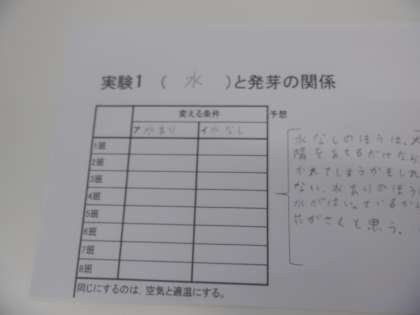 実験1 ( 水 )と発芽の関係
変える条件
予想
ア 水あり
イ 水なし
1班
2班
3班
4班
5班
6班
7班
8班
水なしのほうは、
陽をあてるだけなら
かれてしまうかもしれ
ない。水ありのほう
水がはいっているから
花がさくと思う。
同じにするのは、空気と適温にする。